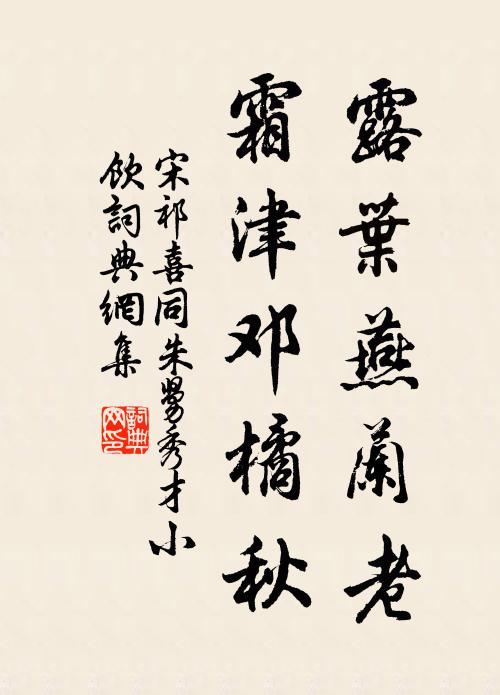 露葉燕蘭老
霜津邓橘秋
宋祁喜同朱勞秀才小
飲詞典網集
詞典
网印